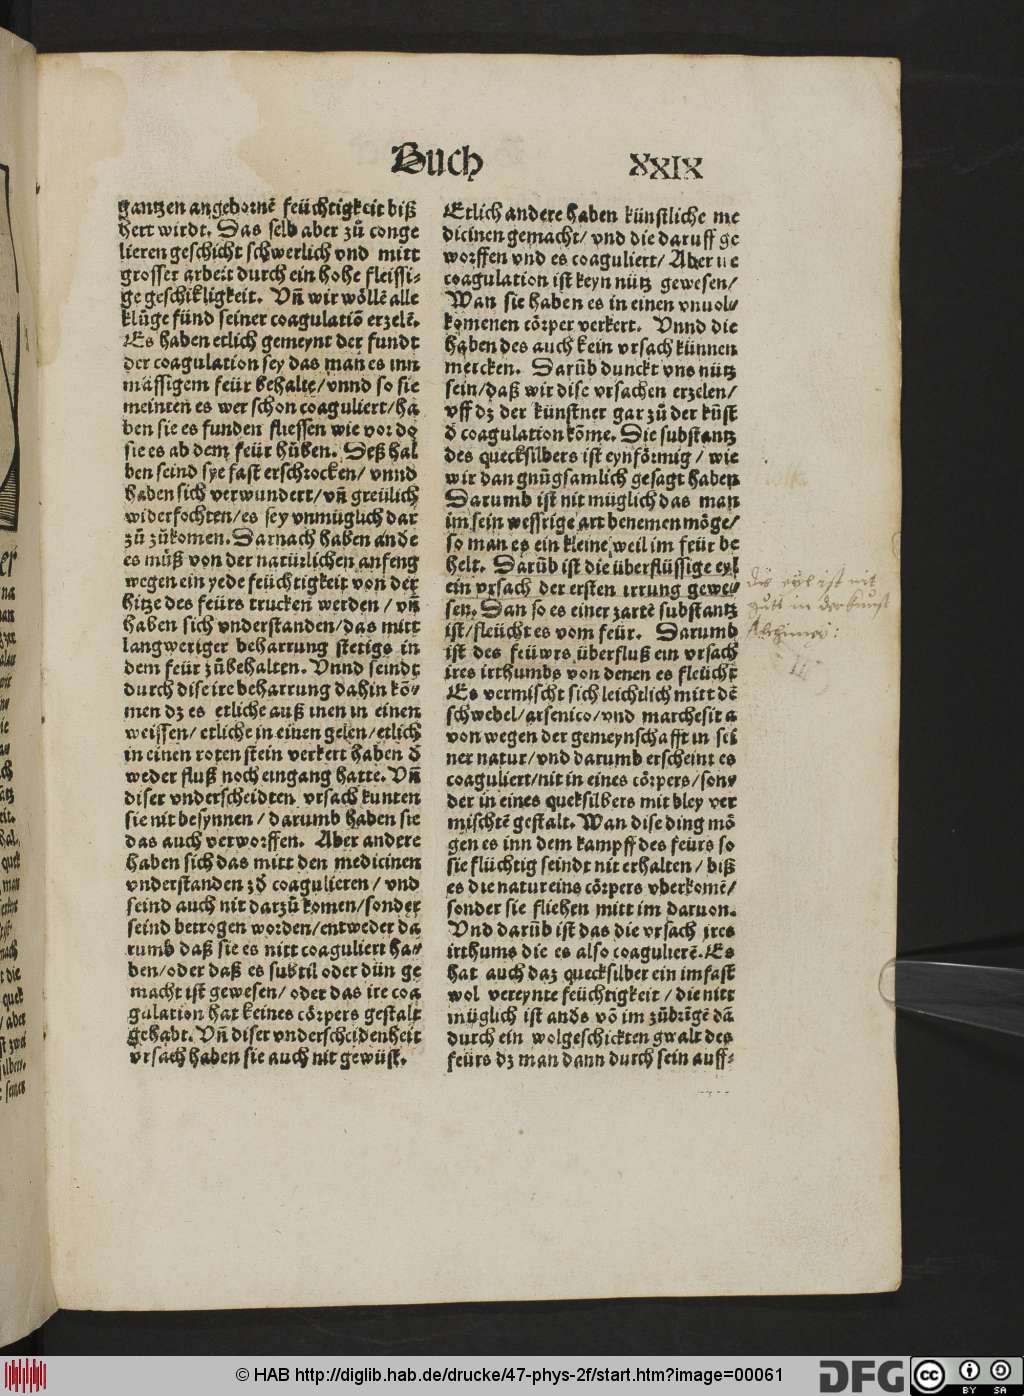 Buch XXIX
gantzen angebornē feüchtigkeit biß
hert wirdt. Das selb aber zů conge
lieren geschicht schwerlich vnd mitt
grosser arbeit durch ein hohe fleissi-
ge geschikligkeit. Vñ wir wöllē alle
klůge fünd seiner coagulatiō erzelē.
Es haben etlich gemeynt der fundt
der coagulation sey das man es inn
mässigem feür behalte/vnnd so sie
meinten es wer schon coaguliert/ha
ben sie es funden fliessen wie vor do
sie es ab dem feür hůben. Deß hal
ben seind sye fast erschrocken/vnnd
haben sich verwundert/vñ greülich
widerfochten/es sey vnmüglich dar
zů zůkomen. Darnach haben ande
es můß von der natürlichen anfeng
wegen ein yede feüchtigkeit von der
hitze des feürs trucken werden/vñ
haben sich vnderstanden/das mitt
langweriger beharrung stetigs in
dem feür zůbehalten. Vnnd seindt
durch dise ire beharrung dahin kō-
men dz es etliche auß inen in einen
weissen/etliche in einen gelen/etlich
in einen roten stein verkert haben đ
weder fluß noch eingang hatte. Vñ
diser vnderscheidten vrsach kunten
sie nit besynnen/darumb haben sie
das auch verworffen. Aber andere
haben sich das mitt den medicinen
vnderstanden zů coagulieren/vnd
seind auch nit darzů komen/sonder
seind betrogen worden/entweder da
rumb daß sie es nitt coaguliert ha-
ben/oder daß es subtil oder dün ge
macht ist gewesen/oder das ire coa
gulation hat keines cörpers gestalt
gehabt. Vñ diser vnderscheidenheit
vrsach haben sie auch nit gewüst.
Etlich andere haben künstliche me
dicinen gemacht/vnd die daruff ge
worffen vnd es coaguliert/Aber
coagulation ist keyn nütz gewesen/
Wan sie haben es in einen vnuol-
komenen cörper verkert. Vnnd die
haben des auch kein vrsach künnen
mercken. Darůb dunckt vns nütz
sein/daß wir dise vrsachen erzelen/
vff dz der künstner gar zů der kůst
đ coagulation kōme. Die substantz
des quecksilbers ist eynförmig/wie
wir dan gnůgsamlich gesagt haben
Darumb ist nit müglich das man
im sein wessrige art benemen möge/
so man es ein kleine weil im feür be
helt. Darůb ist die überflüssige eyl
ein vrsach der ersten irrung gewe-
sen. Dan so es einer zartē substantz
ist/fleücht es vom feür. Darumb
ist des feüwrs überfluß ein vrsach
ires irthumbs von denen es fleücht
Es vermischt sich leichtlich mitt dē
schwebel/arsenico/vnd marchesit a
von wegen der gemeynschafft in sei
ner natur/vnd darumb erscheint es
coaguliert/nit in eines cörpers/son-
der in eines queksilbers mit bley ver
mischtē gestalt. Wan dise ding mö
gen es inn dem kampff des feürs so
sie flüchtig seindt nit erhalten/biß
es die natur eins cörpers vberkomē/
sonder sie fliehen mitt im daruon.
Vnd darůb ist das die vrsach ires
irthums die es also coagulierē. Es
hat auch daz quecksilber ein im fast
wol vereynte feüchtigkeit/die nitt
müglich ist anđs vō im zůbrēgē dā
durch ein wolgeschickten gwalt des
feürs dz man dann durch sein auff-
die eyl ist nit
gutt in der kunst
Alchimei:
© HAB http://diglib.hab.de/drucke/47-phys-2f/start.htm?image=00061
DFG
cc BY SA